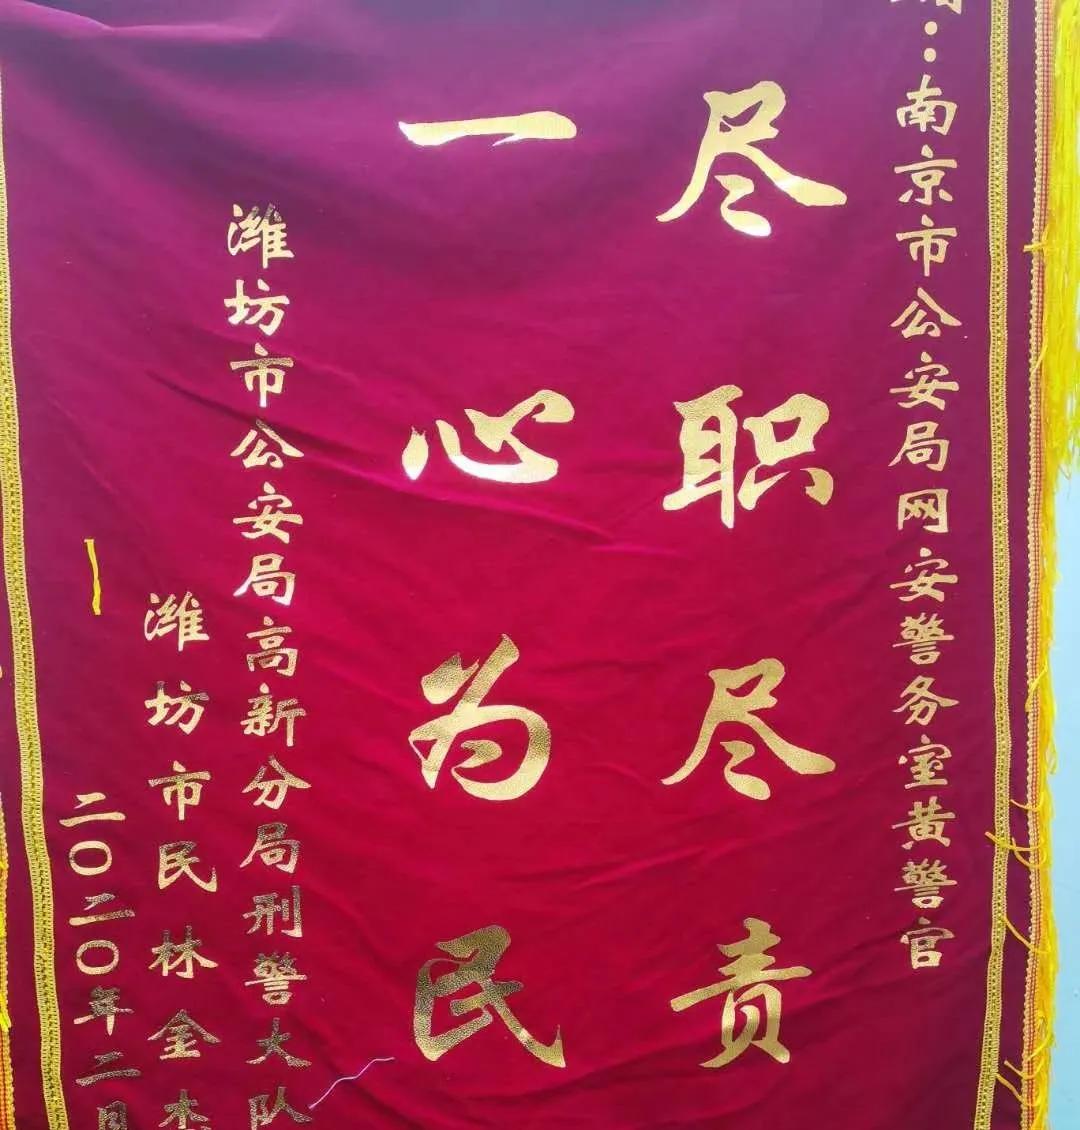 ：南京市公安局网安警务室黄警官
尽职尽责
一心为民
潍坊市公安局高新分局刑警大队
潍坊市民林金杰
二〇二〇年二月